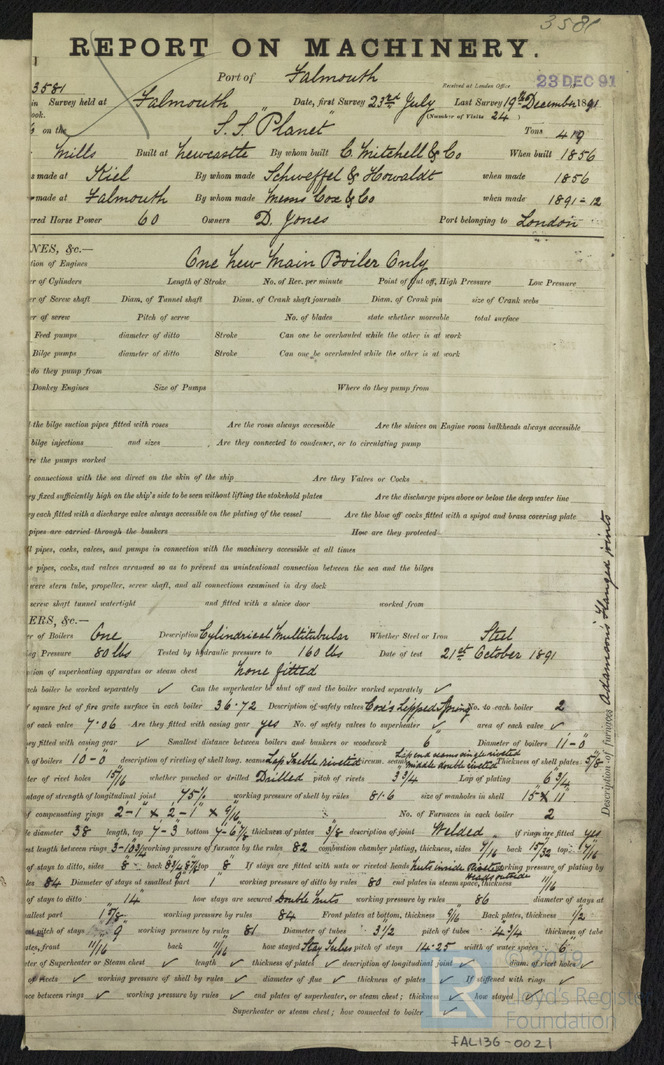 3581
REPORT ON MACHINERY.
Port of Falmouth
Received at London Office 23 DEC 91
3581
in Survey held at Falmouth Date, first Survey 23rd July Last Survey 19th December 1891
ook. (Number of Visits 24)
on the S.S. "Planet" Tons 419
Mills Built at Newcastle By whom built C. Mitchell & Co When built 1856
s made at Kiel By whom made Schweffel & Howaldt when made 1856
s made at Falmouth By whom made Messrs Cox & Co when made 1891-12
ered Horse Power 60 Owners D. Jones Port belonging to London
NES, &c.—
tion of Engines One New Main Boiler Only
er of Cylinders Length of Stroke No. of Rev. per minute Point of Cut off, High Pressure Low Pressure
er of Screw shaft Diam. of Tunnel shaft Diam. of Crank shaft journals Diam. of Crank pin size of Crank webs
er of screw Pitch of screw No. of blades state whether moveable total surface
Feed pumps diameter of ditto Stroke Can one be overhauled while the other is at work
Bilge pumps diameter of ditto Stroke Can one be overhauled while the other is at work
do they pump from
Donkey Engines Size of Pumps Where do they pump from
the bilge suction pipes fitted with roses Are the roses always accessible Are the sluices on Engine room bulkheads always accessible
bilge injections and sizes Are they connected to condenser, or to circulating pump
re the pumps worked
connections with the sea direct on the skin of the ship Are they Valves or Cocks
ey fixed sufficiently high on the ship's side to be seen without lifting the stokehold plates Are the discharge pipes above or below the deep water line
ey each fitted with a discharge valve always accessible on the plating of the vessel Are the blow off cocks fitted with a spigot and brass covering plate
pipes are carried through the bunkers How are they protected
ll pipes, cocks, valves, and pumps in connection with the machinery accessible at all times
e pipes, cocks, and valves arranged so as to prevent an unintentional connection between the sea and the bilges
were stern tube, propeller, screw shaft, and all connections examined in dry dock
screw shaft tunnel watertight and fitted with a sluice door worked from
ERS, &c.—
er of Boilers One Description Cylindrical Multitubular Whether Steel or Iron Steel
ng Pressure 80 lbs Tested by hydraulic pressure to 160 lbs Date of test 21st October 1891
tion of superheating apparatus or steam chest None fitted
ach boiler be worked separately ✓ Can the superheater be shut off and the boiler worked separately ✓
f square feet of fire grate surface in each boiler 36.72 Description of safety valves Cox's Lipped Spring No. to each boiler 2
of each valve 7.06 Are they fitted with easing gear yes No. of safety valves to superheater ✓ area of each valve ✓
ey fitted with easing gear ✓ Smallest distance between boilers and bunkers or woodwork 6" Diameter of boilers 11-0"
h of boilers 10-0 description of riveting of shell long. seams Lap treble riveted circum. seams Lap end seams single riveted middle double riveted Thickness of shell plates 5/8"
ter of rivet holes 15/16 whether punched or drilled Drilled pitch of rivets 3 3/4 Lap of plating 6 3/4
ntage of strength of longitudinal joint 75% working pressure of shell by rules 81.6 size of manholes in shell 15" x 11"
of compensating rings 2'-1" x 2'-1" x 9/16 No. of Furnaces in each boiler 2
de diameter 38" length, top 7-3 bottom 7-6 7/8 thickness of plates 3/8 description of joint Welded if rings are fitted yes
est length between rings working pressure of furnace by the rules 82 combustion chamber plating, thickness, sides 7/16 back 15/32 top
of stays to ditto, sides 8" back top 8" If stays are fitted with nuts or riveted heads nuts inside Riveted Heads outside working pressure of plating by
les 84 Diameter of stays at smallest part working pressure of ditto by rules 80 end plates in steam space, thickness 11/16
of stays to ditto 14" how are stays secured Double Nuts working pressure by rules 86 diameter of stays at
mallest part 1 7/8" working pressure by rules 84 Front plates at bottom, thickness 9/16 Back plates, thickness 1/2
est pitch of stays 9 working pressure by rules 81 Diameter of tubes 3 1/2 pitch of tubes 4 3/4 thickness of tube
ates, front 11/16 back 11/16 how stayed Stay Tubes pitch of stays 14.25 width of water spaces 6"
ter of Superheater or Steam chest ✓ length ✓ thickness of plates ✓ description of longitudinal joint ✓ diam. of rivet holes ✓
of rivets ✓ working pressure of shell by rules ✓ diameter of flue ✓ thickness of plates ✓ If stiffened with rings ✓
nce between rings ✓ working pressure by rules ✓ end plates of superheater, or steam chest; thickness ✓ how stayed ✓
Superheater or steam chest; how connected to boiler ✓
Description of furnaces Adamson's flanged joints
Lloyd's Register
Foundation
FAL136-0021